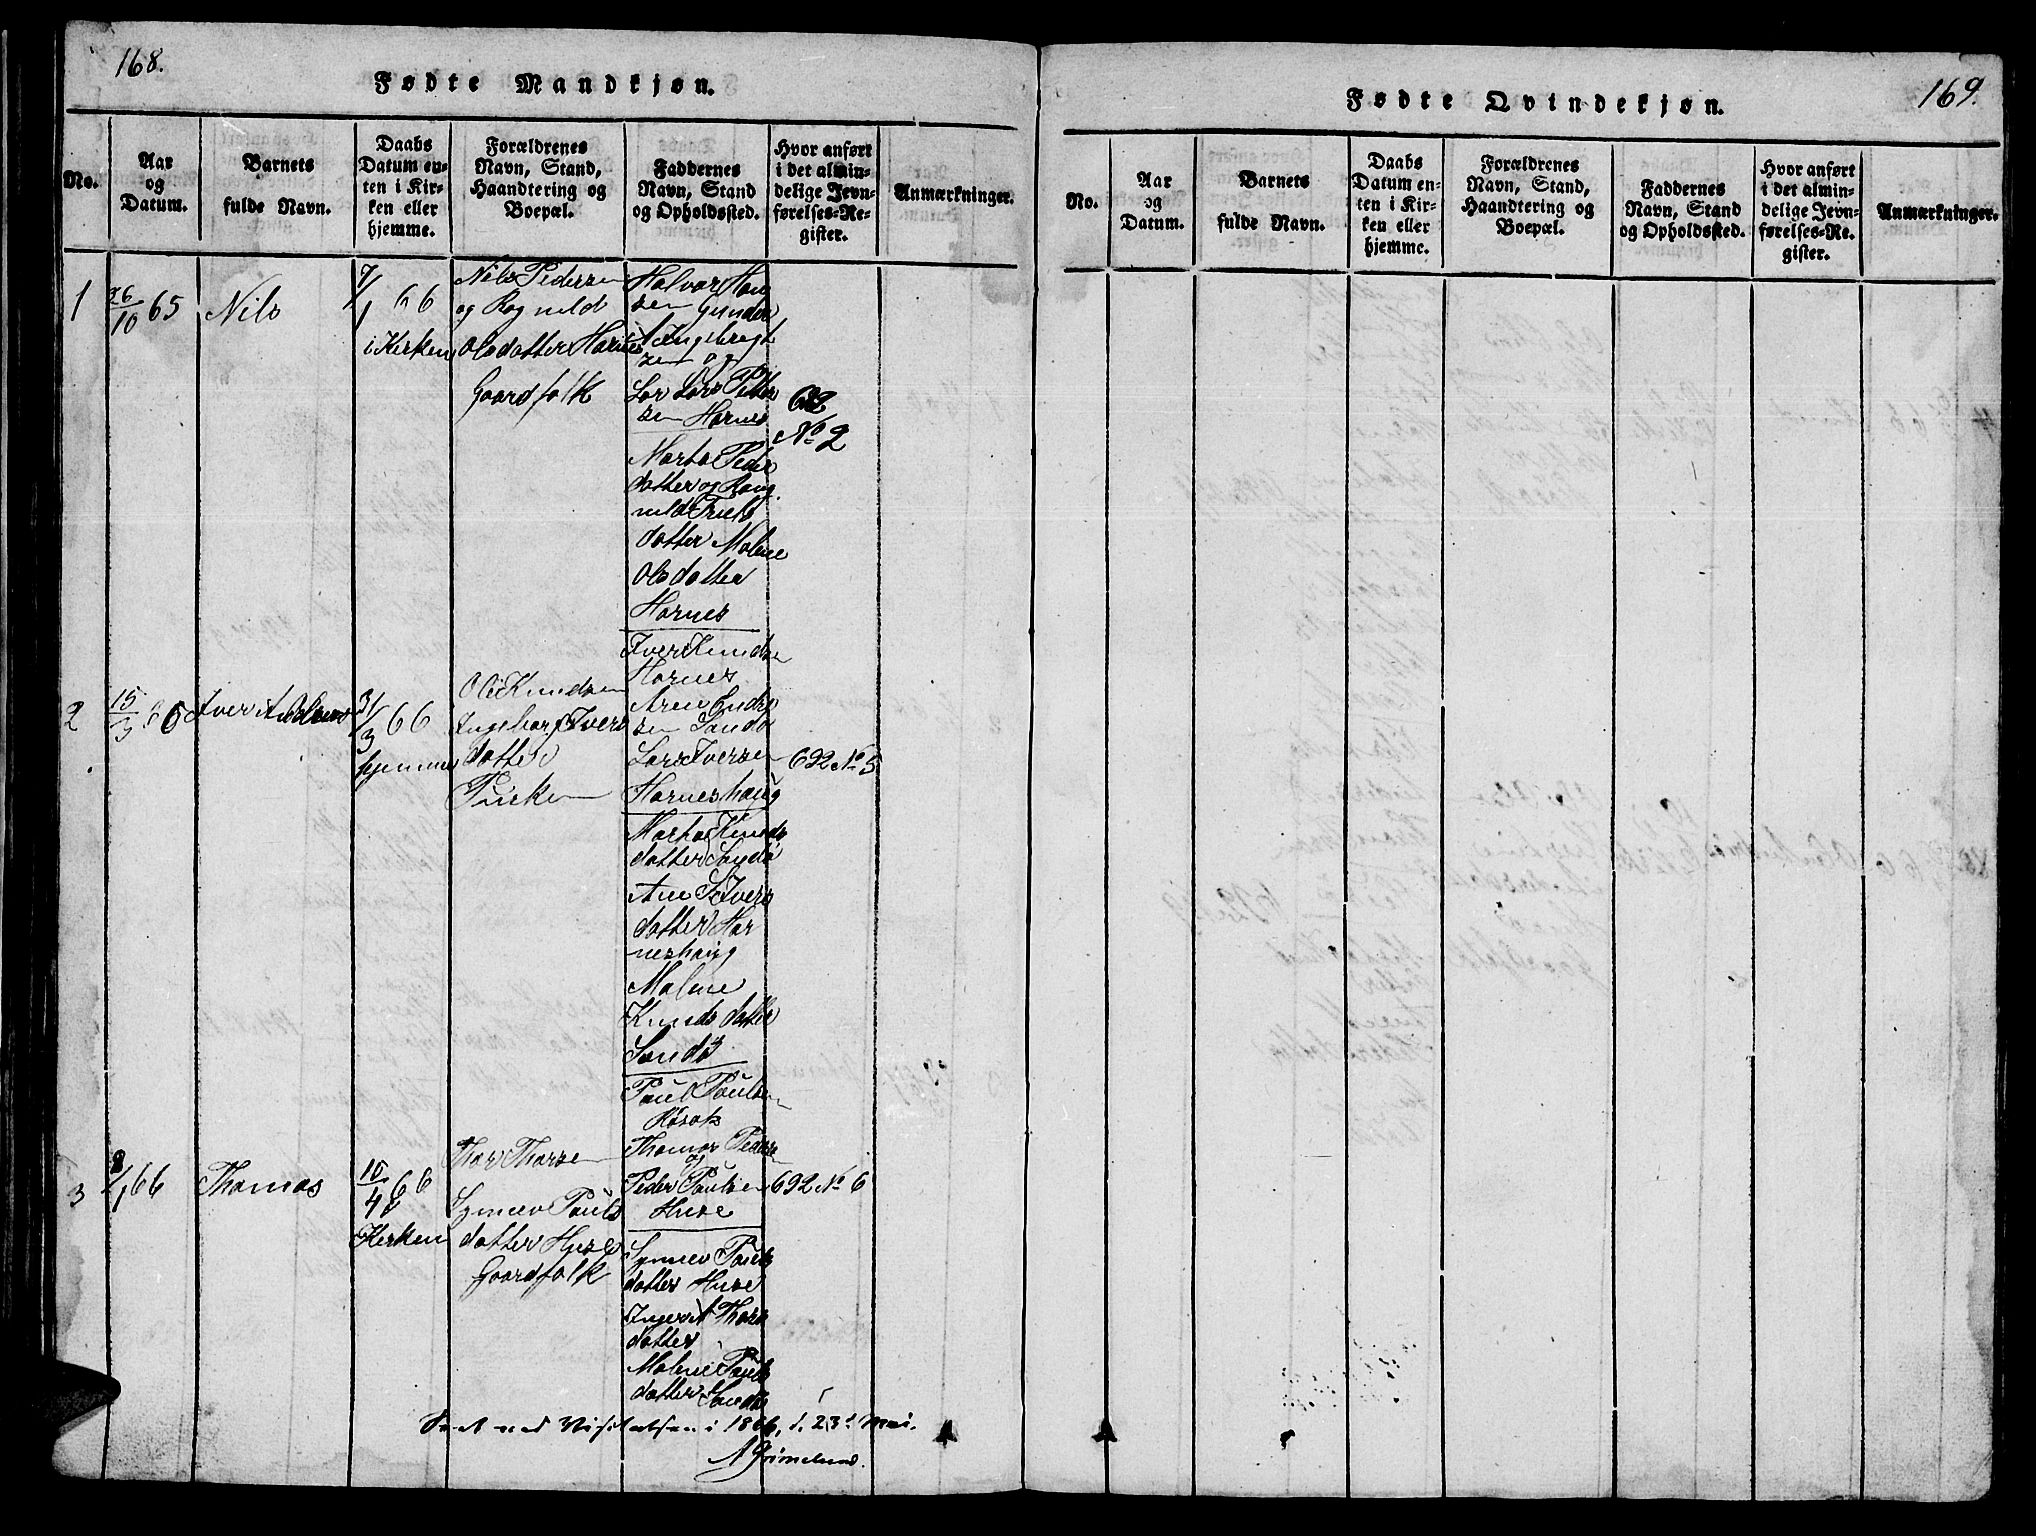 168.
Fødte Mandkjøn.
No.
Aar
og
Datum.
Barnets
fulde Navn.
Daabs
Datum en-
ten i Kir-
ken eller
hjemme.
Forældrenes
Navn, Stand,
Haandtering og
Boepæl.
Faddernes
Navn, Stand
og Opholdssted.
Hvor anført
i det almin-
delige Jevn-
førelses-Re-
gister.
Anmærkninger.
1
26/10 65
Nils
7/1 66
i Kirken
Nils Pedersen
og Ragnild
Olsdatter Harnes
Gaardfolk
Halvor Han
sen Gunder
Ingebregt
sen og
Lars Petter
sen Harnes
Marta Peder
datter og Rang
nild Truels
datter Malene
Olsdatter
Harnes
692
No 2
2
15/3 66
Iver Andreas
31/3 66
hjemme
Ole Knudsen
Ingeborg Ivers
datter
Iver Knudsen
Harnes
Arne Endre
sen Sandø
Lars Iversen
Harneshaug
Marta Knuds
datter Sandø
Ane S Ivers
datter Har
neshaug
Malene
Knudsdatter
Sandø
692 No 5
3
2/1 66
Thomas
15/4 66
Kirken
Thor Thorsen
Synnev Pauls
datter Huse
Gaardfolk
Paul Paulsen
Røsok
Thomas Peders
og
Peder Paulsen
Huse
Synnev Pauls
datter Huse
Inger A Thors
datter
Malene Pauls
datter Sandø
692 No 6
Seet ved Visitatsen i 1866, d. 23d Mai.
A Grimelund.
169.
Fødte Qvindekjøn.
No.
Aar
og
Datum.
Barnets
fulde Navn.
Daabs
Datum en-
ten i Kir-
ken eller
hjemme.
Forældrenes
Navn, Stand,
Haandtering og
Boepæl.
Faddernes
Navn, Stand
og Opholdssted.
Hvor anført
i det almin-
delige Jevn-
førelses-Re-
gister.
Anmærkninger.